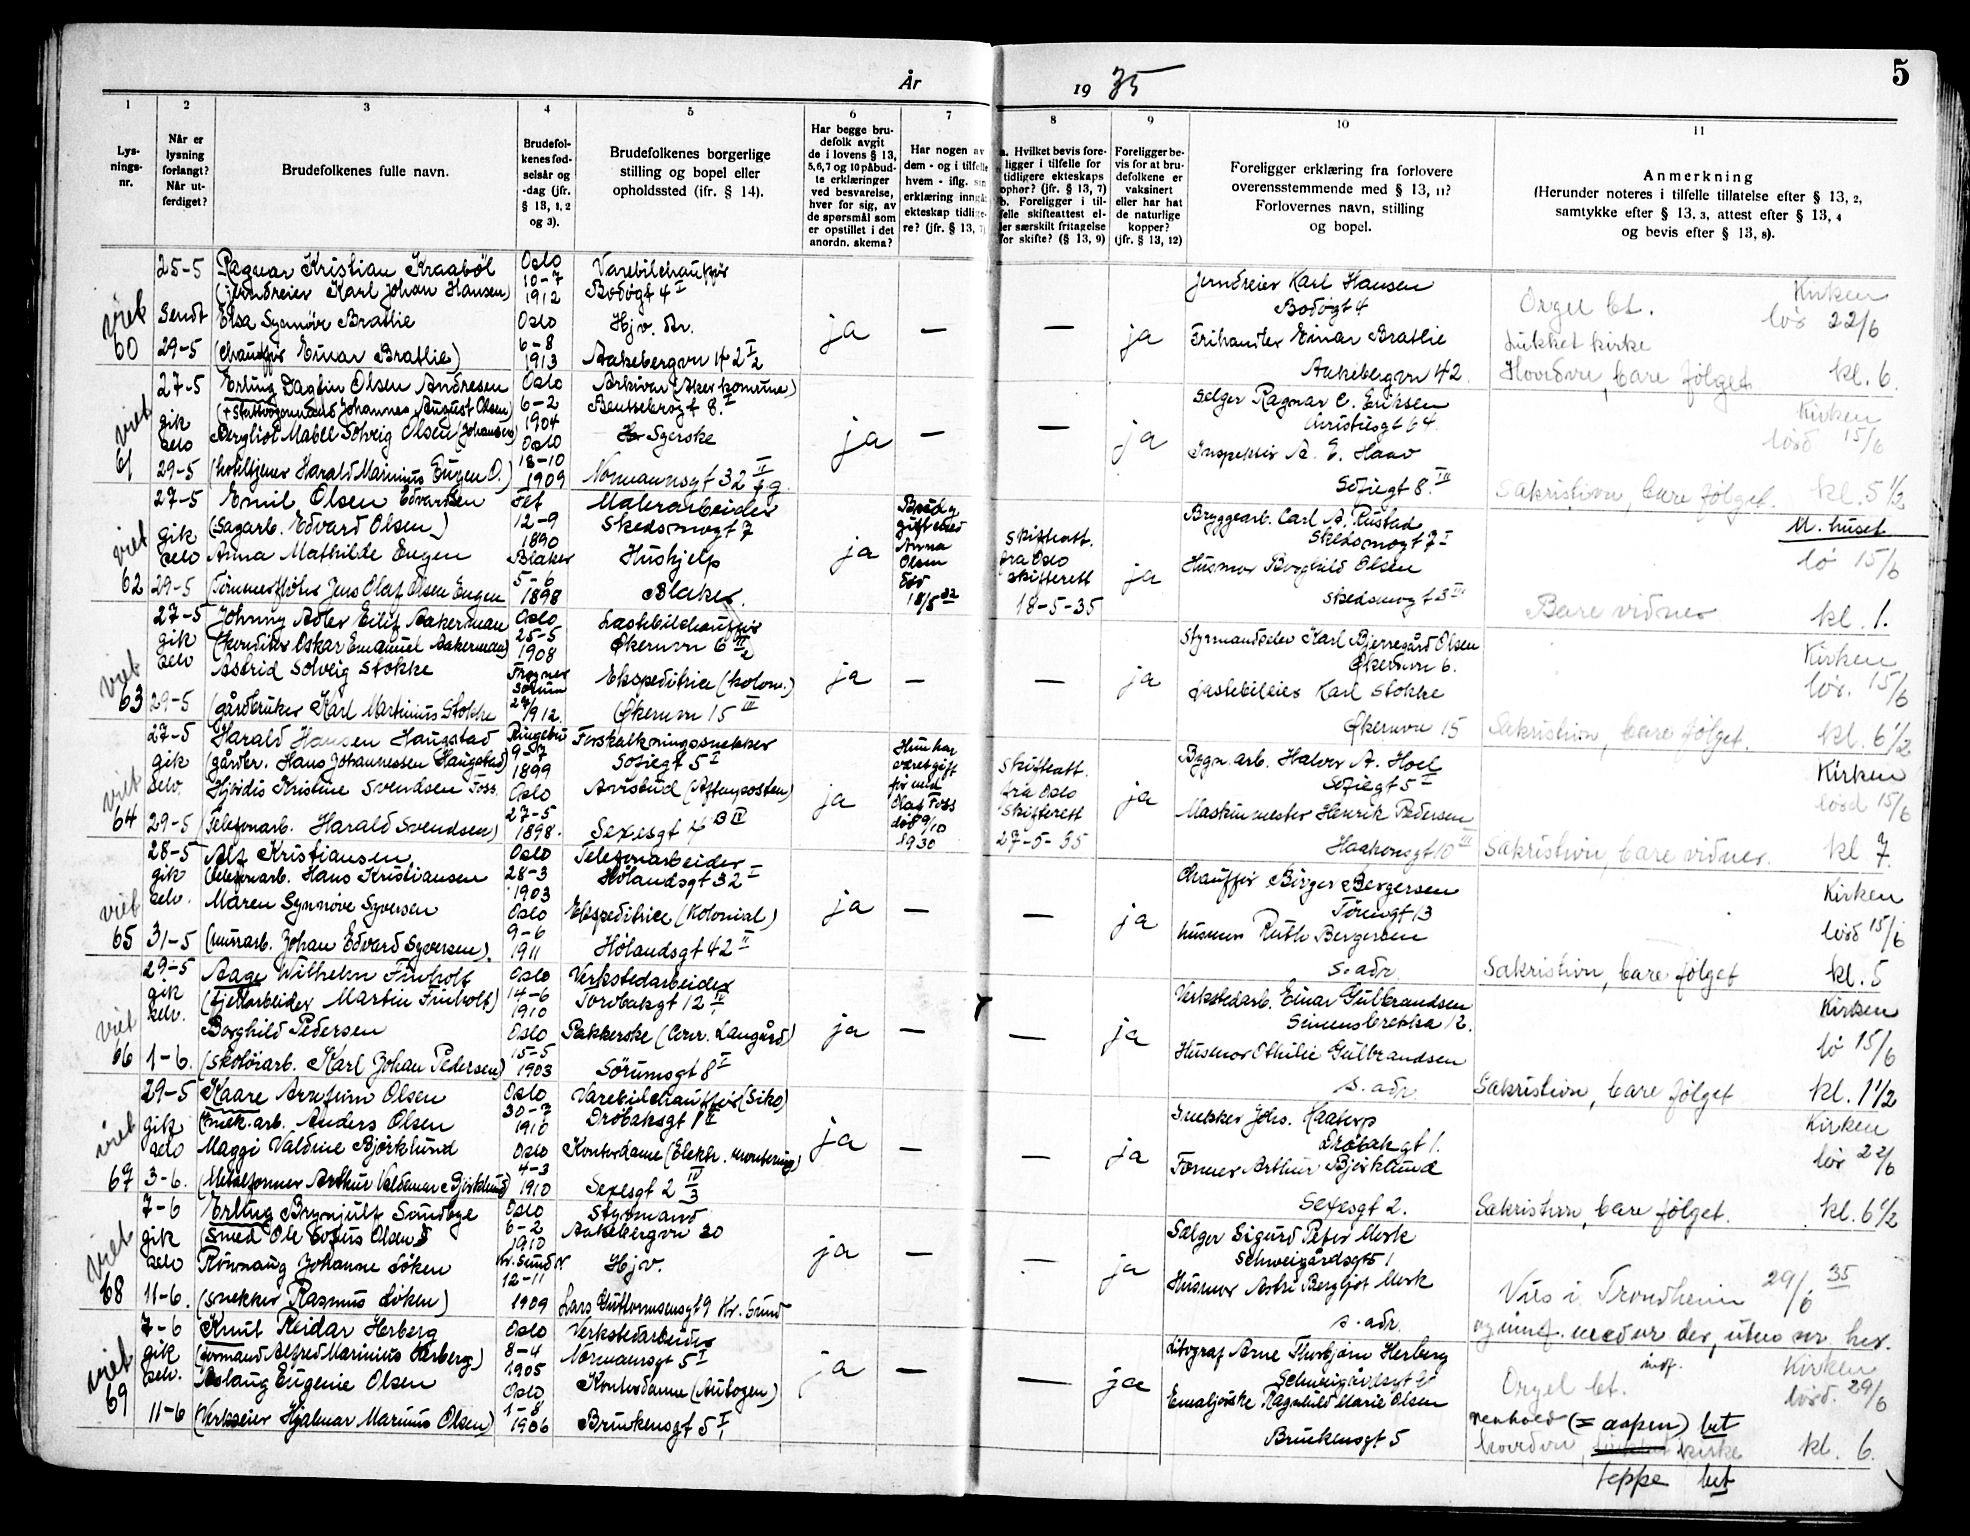 År 19 35
5
1 2 3 4 5 6 7 8 9 10 11
Lys-
nings-
nr.
Når er
lysning
forlangt?
Når ut-
ferdiget?
Brudefolkenes fulle navn.
Brudefol-
kenes fød-
selsår og
-dag (jfr.
§ 13, 1, 2
og 3).
Brudefolkenes borgerlige
stilling og bopel eller
opholdssted (ifr. § 14).
Har begge bru-
defolk avgit
de i lovens § 13,
5,6,7 og 10 påbud-
te erklæringer
ved besvarelse,
hver for sig, av
de spørsmål som
er opstillet i det
anordn. skema?
Har nogen av
dem - og i tilfelle
hvem - iflg. sin
erklæring inngått
ekteskap tidlige-
re? (jfr. § 13, 7)
a. Hvilket bevis fore-
ligger i tilfelle for
tidligere ekteskaps
ophør? (jfr. § 13, 7)
b. Foreligger i til-
felle skifteattest el-
ler særskilt fritagelse
for skifte? (§ 13, 9)
Foreligger be-
vis for at bru-
defolkene er
vaksinert
eller har hat
de naturlige
kopper?
(jfr. § 13, 12)
Foreligger erklæring fra forlovere
overensstemmende med § 13, 11?
Forlovernes navn, stilling
og bopel.
Anmerkning
(Herunder noteres i tilfelle tillatelse efter § 13, 2,
samtykke efter § 13, 3, attest efter § 13, 4
og bevis efter § 13, 8).
viet
60
25-5
Sendt
29-5
Ragnar Kristian Kraabøl
(jerndreier Karl Johan Hansen)
Elsa Synnöve Bratlie
(chauffør Einar Bratlie)
Oslo
10-7
1912
Oslo
6-8
1913
Varebilchauffør
Bodøgt 4 I
Hjv. dr.
Aakebergvn 42 I/2
ja
—
—
ja
Jerndreier Karl Hansen
Bodøgt 4
Frihandler Einar Bratlie
Aakebergvn 42
Orgel bt.
Lukket kirke
Hovedvn, bare følget
Kirken
lör 22/6
kl. 6.
viet
61
27-5
gik
selv
29-5
Erling Dagfin Olsen Andresen
(+ Johannes August Olsen)
Bergliot Mabel Solveig Olsen (Johansen)
(hotelltjener Harald Marinius Eugen O.)
Oslo
6-2
1904
Oslo
18-10
1909
Arkivar (Aker komune)
Bentsebrogt 8. I
Syerske
Normannsgt 32 II
ja
—
—
ja
Selger Ragnar C. Eriksen
Christiesgt 64
Inspektör A. E. Haav
Sofiegt 8. III
Sakristivn, bare følget.
Kirken
lörd 15/6
kl. 5 1/2
viet
62
27-5
gik
selv
29-5
Emil Olsen Edvardsen
(Sagarb. Edvard Olsen)
Anna Mathilde Engen
(Tømmerfløter Jens Olaf Olsen Engen
Fet
12-9
1890
Blaker
5-6
1898
Malerarbeider
Skedsmogt 7
Hushjelp
Blaker.
ja
Brudg.
gift med
Anna
Olsen
död
18/5 32
skifteatt.
fra Oslo
skifterett
18-5-35
ja
Bryggearb. Carl A. Rustad
Skedsmogt 7 I
Husmor Borghild Olsen
Skedsmogt 3 III
Bare vidner
M. huset
lö 15/6
kl. 1.
viet
63
27-5
gik
selv
29-5
Johnny Adler Eilif Aakerman
(konditor Oskar Emanuel Aakerman)
Astrid Solveig Stokke
(gårdbruker Karl Martinius Stokke
Oslo
25-5
1908
Frogner
Sørum
1912.
Lastebilchauffør
Økernvn 6 III/2
Ekspeditrice (kolon.)
Økernvn 15 III
ja
—
—
ja
Styrmandselev Karl Bjerregård Olsen
Økernvn 6.
Lastebileier Karl Stokke
Økernvn 15
Sakristivn, bare følget.
Kirken
lör. 15/6
kl. 6 1/2
viet
64
27-5
gik
selv.
29-5
Harald Hansen Haugstad
(gårdbr. Hans Johannessen Haugstad)
Hjördis Kristine Svendsen Foss
(Telefonarb. Harald Svendsen)
Ringebu
9-7
1899
Oslo
27-5
1898.
Forskalkningssnekker
Sofiegt 5 I
Avisbud (Aftenposten)
Sexesgt 4 B IV
ja
Hun har
været gift
før med
Olaf Foss
död 9/10
1930
skifteatt.
fra Oslo
skifterett
27-5-35
ja
Bygn. arb. Halvor A. Hoel
Sofiegt 5 I
Maskinmester Henrik Pedersen
Haakonsgt 10 III
Sakristivn, bare vidner.
Kirken
lörd 15/6
kl 7
viet
65
28-5
gik
selv.
31-5
Alf Kristiansen
(telefonarb. Hans Kristiansen
Maren Synnove Syversen
(murarb. Johan Edvard Syversen).
Oslo
28-3
1903
Oslo
9-6
1911
Telefonarbeider
Hølandsgt 32 I
Ekspeditrice (Kolonial)
Hölandsgt 42 II
ja
—
—
ja
Chauffør Birger Bergersen
Töiengt 13
husmor Ruth Bergersen
s. adr.
Sakristivn, bare følget
Kirken
lörd 15/6
kl. 5
viet
66
29-5
gik
selv.
1-6.
Aage Wilhelm Finholt
(fjellarbeider Martin Finholt)
Borghild Pedersen
(Skotöiarb. Karl Johan Pedersen)
Oslo
14-6
1910
Oslo
15-5
1903
Verkstedarbeider
Torvbakgt 12 IV
Pakkerske (Conr. Langård)
Sörumsgt 8 I
ja
—
—
ja
Verkstedarb. Einar Gulbrandsen
Simensbrekka 12.
Husmor Othilie Gulbrandsen
s. adr
Sakristivn, bare følget
Kirken
lö 15/6
kl. 1 1/2
viet
67
29-5
gik
selv
3-6.
Kaare Arnfinn Olsen
(mek. arb. Anders Olsen
Maggi Valdine Bjørklund
(Metalformer Arthur Valdemar Bjørklund)
Oslo
30-7
1910
Oslo
4-3
1910
Varebilchauffør (Siko)
Drøbaksgt 1 II
Kontordame (Elektr. montering)
Sexesgt 2 IV/3
ja
—
—
ja
Snekker Johs. Haatorp
Drøbakgt 1.
Former Arthur Bjørklund
Sexesgt 2.
Sakristivn, bare følget.
Kirken
lör 22/6
kl. 6 1/2
viet
68
7-6
gik
selv
11-6.
Erling Brynjulf Sandbye
(Smed Ole Sofus Olsen)
Rönnaug Johanne Løken
(snekker Rasmus Løken)
Oslo
6-2
1910
Kr. Sund N
12-11
1909
Styrmand
Aakebergvn 20
Hjv.
Lars Guttormsensgt 9 Kr. Sund
ja
—
—
ja
Selger Sigurd Peter Merk
Schweigårdsgt 51
Husmor Astri Bergljot Merk
s. adr.
Vies i Trondheim 29/6 35
og innf. med nr der, uten nr. her.
viet
69
7-6
gik
selv.
11-6
Knut Reidar Herberg
(formand Alfred Marinius Herberg)
Aslaug Eugenie Olsen
(Verkseier Hjalmar Marinus Olsen)
Oslo
8-4
1905
Oslo
1-8
1906
Verkstedarbeider
Normansgt 5 I
Kontordame (Autogen)
Brinkensgt 5 I,
ja
—
—
ja
Litograf Arne Thorbjørn Herberg
Emaljørske Ragnhild Marie Olsen
Brinkensgt 5
Orgel bt.
renhold (= aapen) bet
hovedvn, kirke
teppe bet
Kirken
lörd. 29/6
kl. 6.